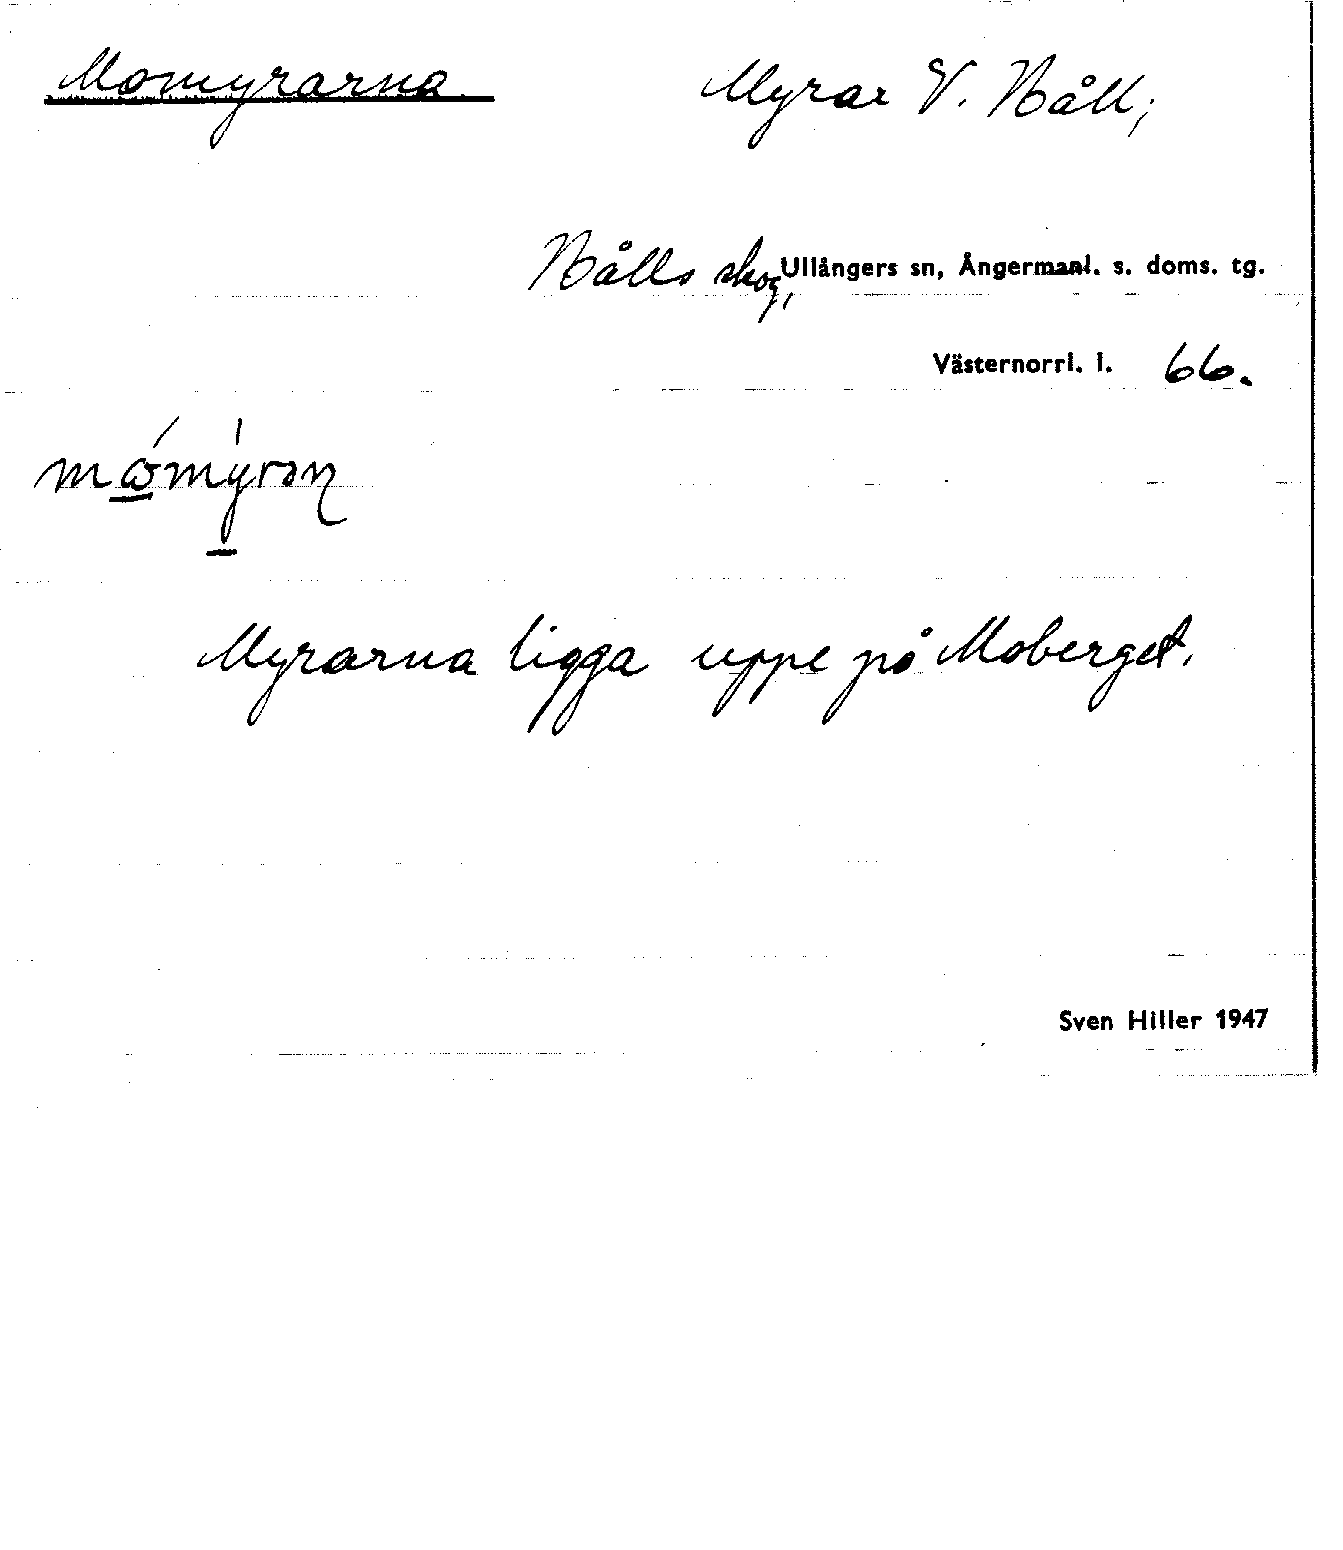 Momyrarna. Myrar V. Håll;
Hålls skog, Ullångers sn, Ångermanl. s. doms. tg.
Västernorrl. l. 66.
Myrarna ligga uppe på Moberget.
Sven Hiller 1947